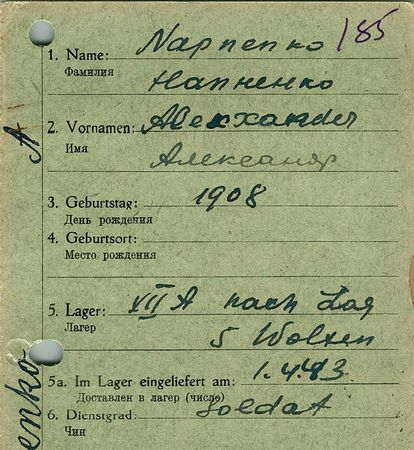 185
1. Name: Narpenko
Фамилия Нарпенко
2. Vornamen: Alexxander
Имя Александр
3. Geburtstag: 1908
День рождения
4. Geburtsort:
Место рождения
5. Lager: VII A nach Lag
Лагер 5 Wolxen
5a. Im Lager eingeliefert am: 1.4.43
Доставлен в лагер (число)
6. Dienstgrad: Soldat
Чин
A
enko